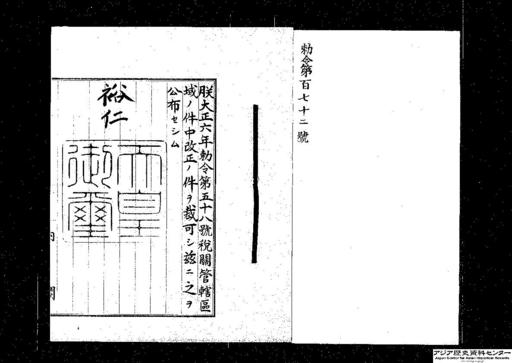 勅令第百七十二號
朕大正六年勅令第五十八號税關管轄區
域ノ件中改正ノ件ヲ裁可シ玆ニ之ヲ
公布セシム
裕仁
天皇
御璽
アジア歴史資料センター
Japan Center for Asian Historical Records